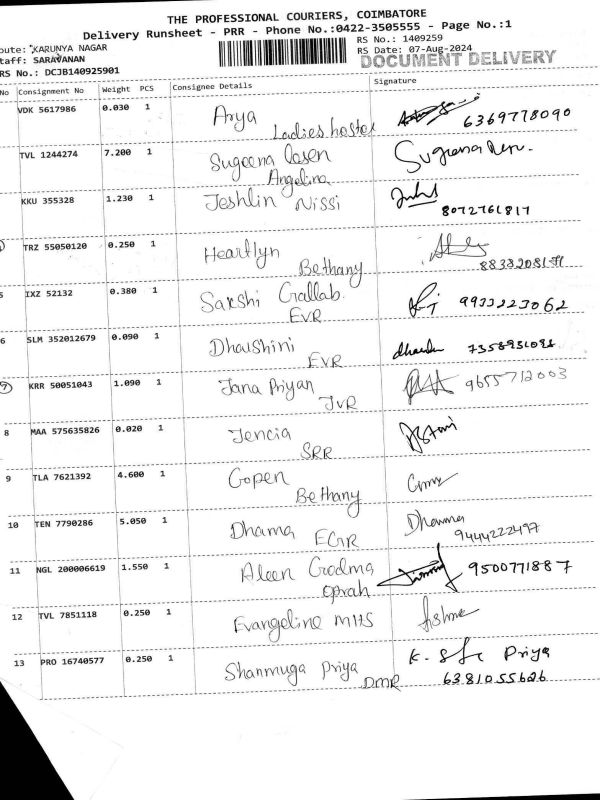 THE PROFESSIONAL COURIERS, COIMBATORE
Delivery Runsheet - PRR - Phone No.:0422-3505555 - Page No.:1
oute: KARUNYA NAGAR
RS No.: 1409259
taff: SARAVANAN
RS Date: 07-Aug-2024
RS No.: DCJB140925901
DOCUMENT DELIVERY
No Consignment No Weight PCS Consignee Details Signature
VDK 5617986 0.030 1 Arya
Ladies hostel 6369778090
TVL 1244274 7.200 1 Sugeena
Angelina
KKU 355328 1.230 1 Jeshlin Nissi
8072761817
TRZ 55050120 0.250 1 Heartlyn
Bethany
5 IXZ 52132 0.380 1 Sakshi Gallab 9933223062
EVR
6 SLM 352012679 0.090 1 Dharshini
EVR
7 KRR 50051043 1.090 1 Jana Priyan 9655712003
JVR
8 MAA 575635826 0.020 1 Jencia
SRR
9 TLA 7621392 4.600 1 Gopen
Bethany
10 TEN 7790286 5.050 1 Dhama EGR Dhamma
9444222497
11 NGL 200006619 1.550 1 Aleen Godma 9500771887
oprah
12 TVL 7851118 0.250 1 Evangeline MHS
13 PRO 16740577 0.250 1 Shanmuga Priya K. Priya
DMR 6381055626